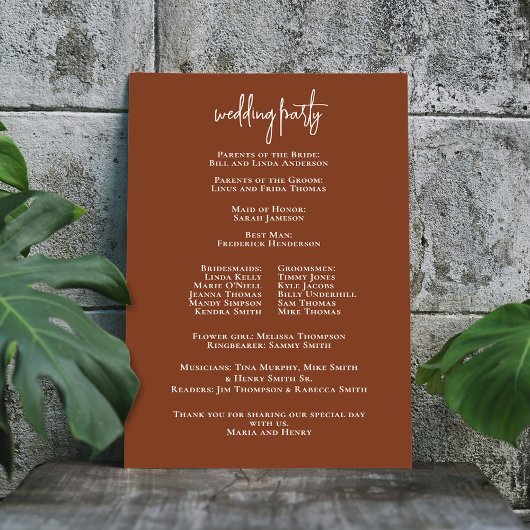 wedding party
Parents of the Bride:
Bill and Linda Anderson
Parents of the Groom:
Linus and Frida Thomas
Maid of Honor:
Sarah Jameson
Best Man:
Frederick Henderson
Bridesmaids:
Linda Kelly
Marie O'Niell
Jeanna Thomas
Mandy Simpson
Kendra Smith
Groomsmen:
Timmy Jones
Kyle Jacobs
Billy Underhill
Sam Thomas
Mike Thomas
Flower girl: Melissa Thompson
Ringbearer: Sammy Smith
Musicians: Tina Murphy, Mike Smith
& Henry Smith Sr.
Readers: Jim Thompson & Rabecca Smith
Thank you for sharing our special day
with us.
Maria and Henry